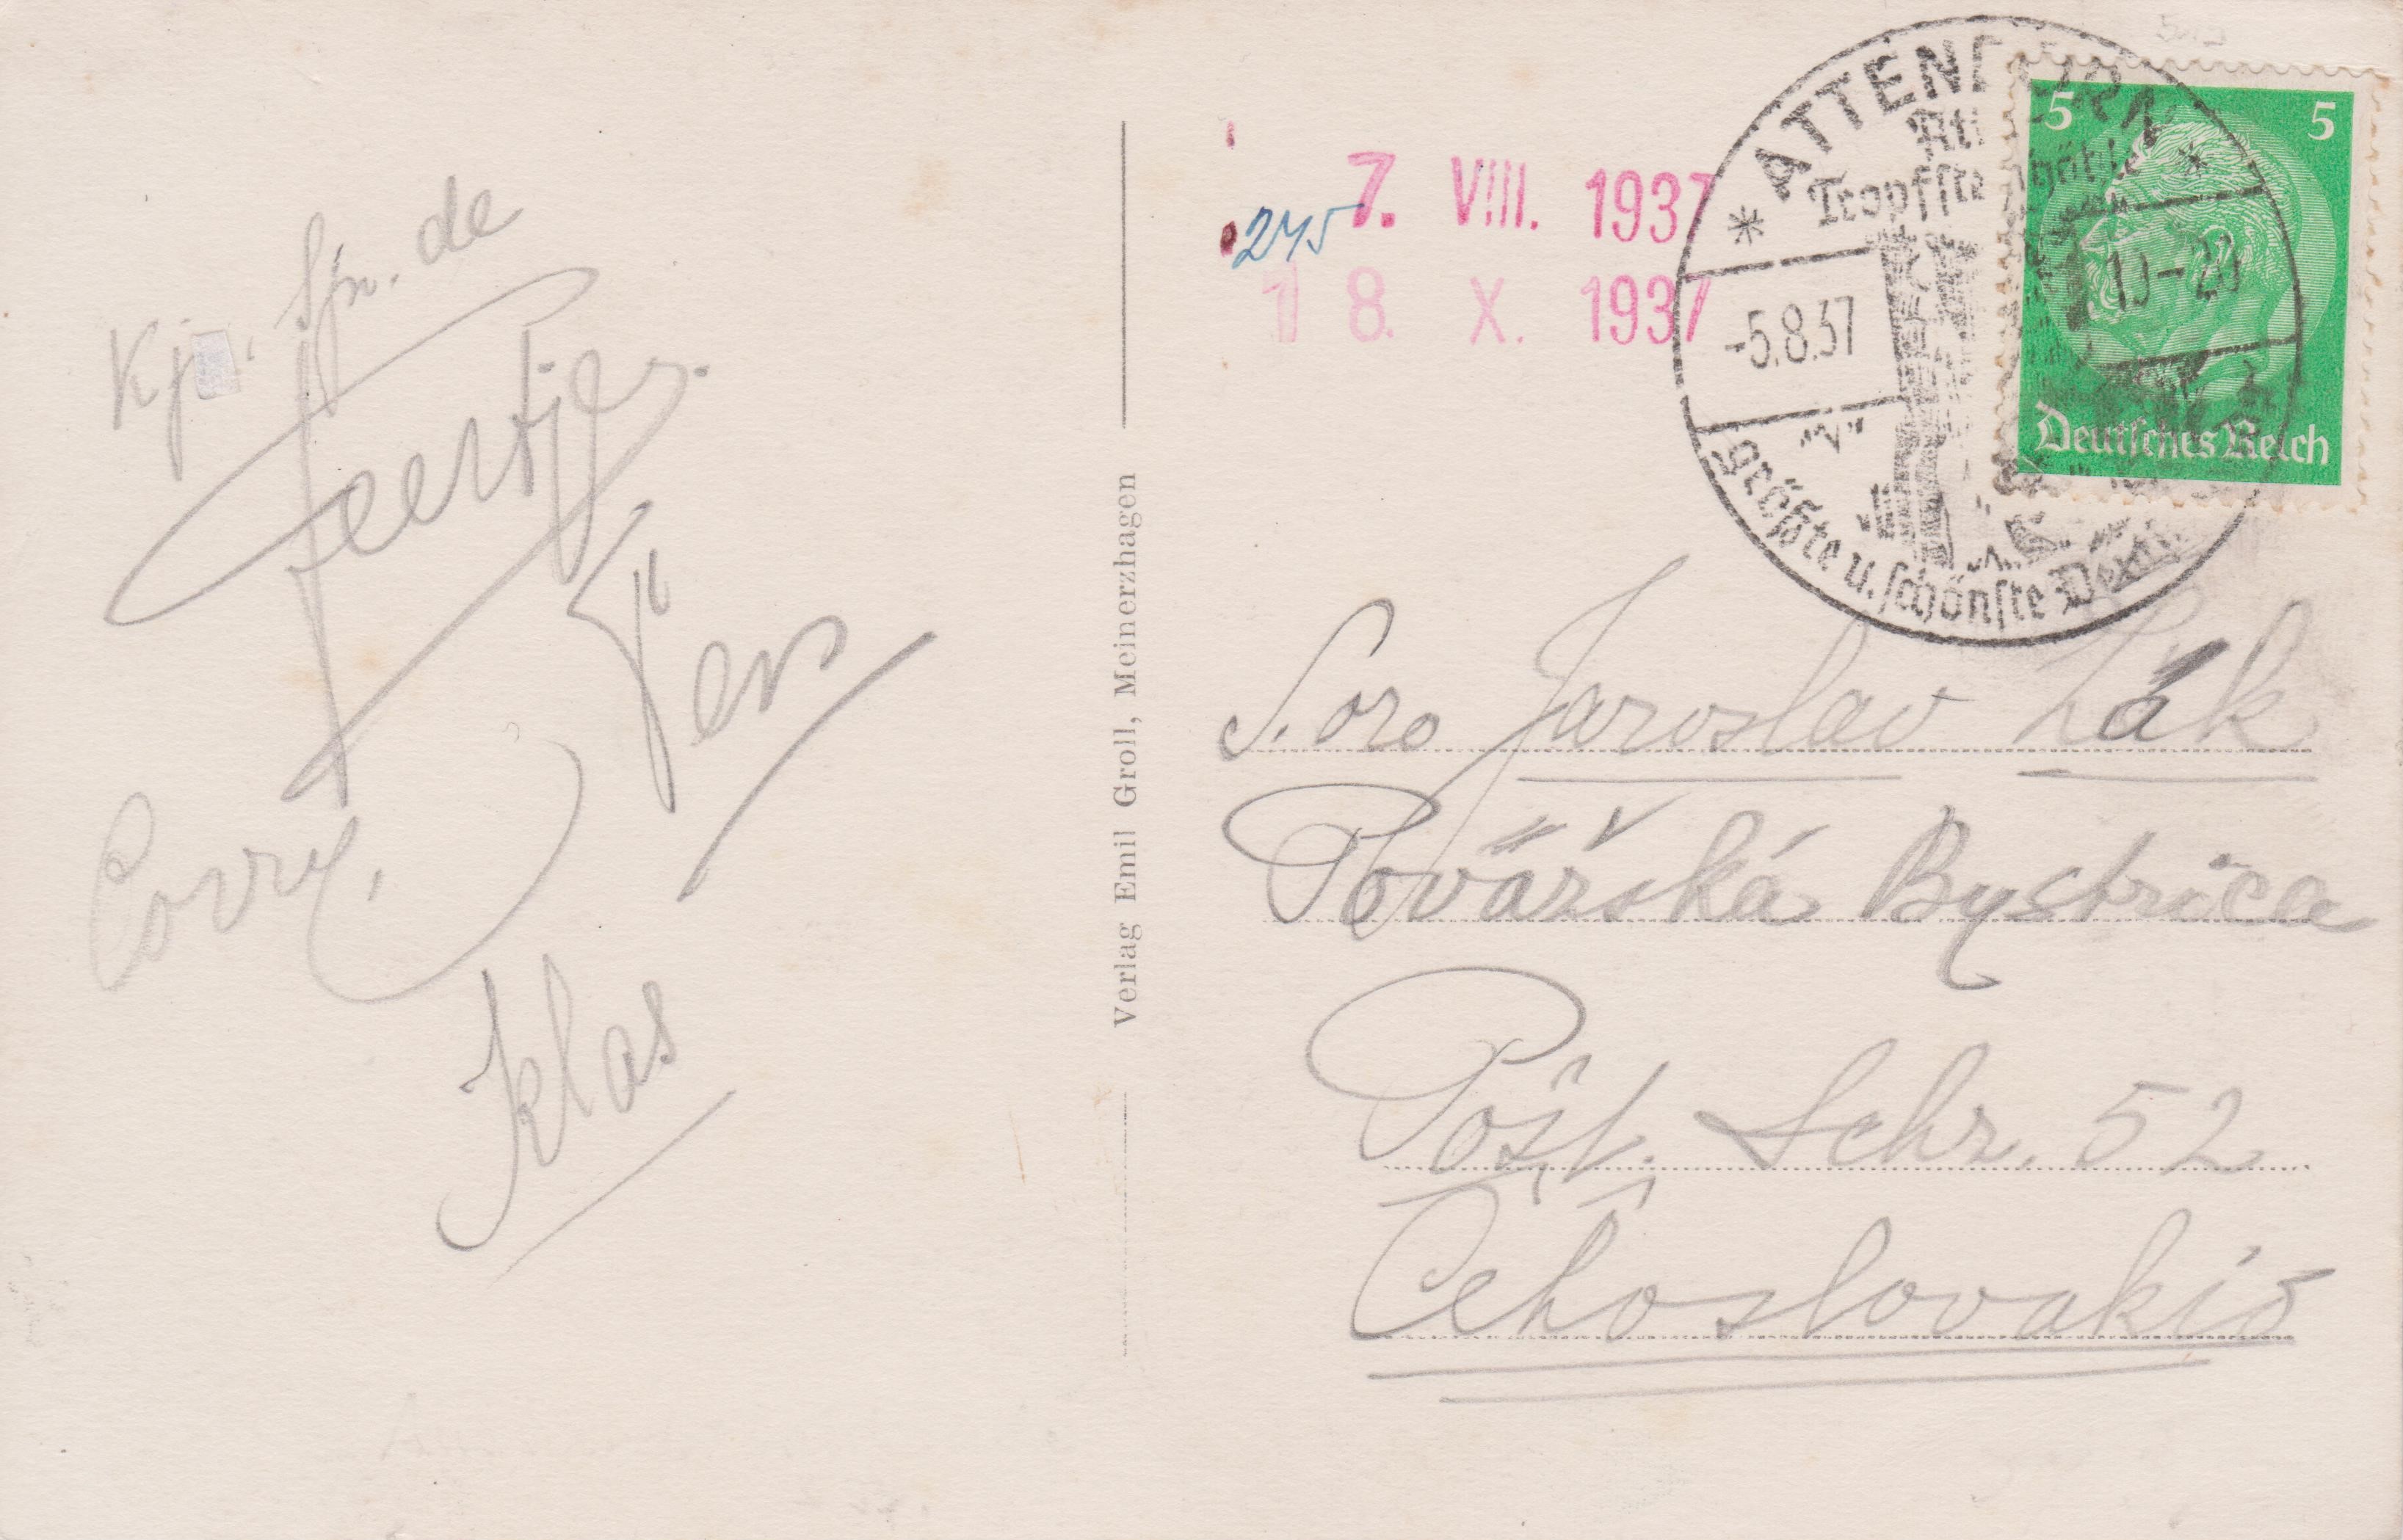 Sp. de
Geertje.
Corry,
Klas
Verlag Emil Groll, Meinerzhagen
245
7. VIII. 1937
18. X. 1937
* ATTENDORN *
Tropfsteinhöhle
-5.8.37 19-20
größte u. schönste
5 5
Deutsches Reich
S.oro Jaroslav Žák
Považská Bystrica
Pošt. Schr. 52
Ĉeĥoslovakio